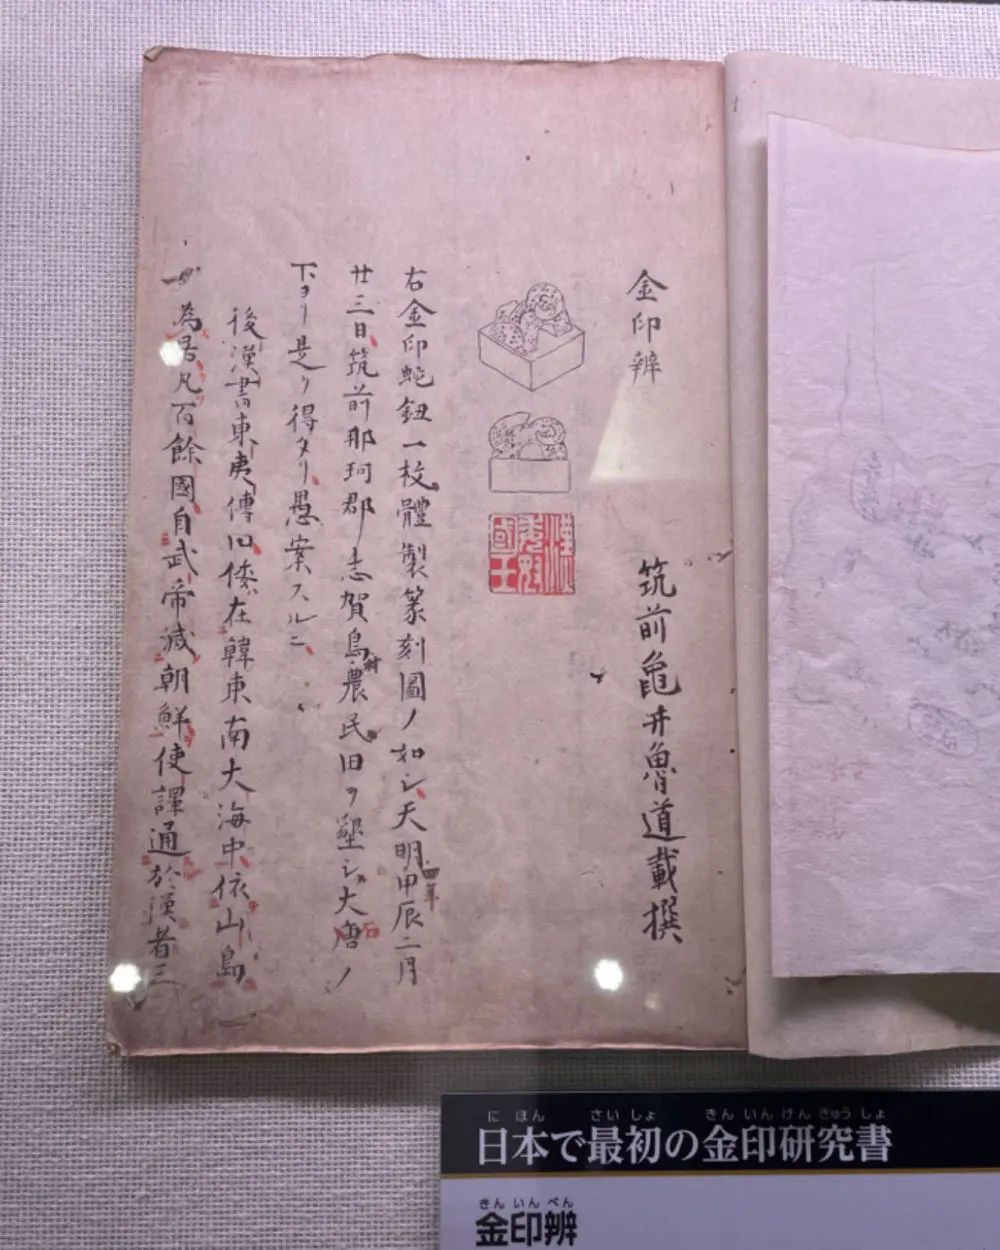 金印辨
筑前亀井魯道載撰
漢委奴國王
右金印蛇鈕一枚體製篆刻圖ノ如シ天明甲辰二月
四年
廿三日筑前那珂郡志賀島農民田ヲ墾シ大唐ノ
村
石
下ヨリ是ヲ得タリ愚案スルニ
後漢書東夷傳曰倭在韓東南大海中依山島
為居凡百餘國自武帝滅朝鮮使譯通於漢者三
に ほん さい しょ きん いん けん きゅう しょ
日本で最初の金印研究書
きん いん べん
金印辨